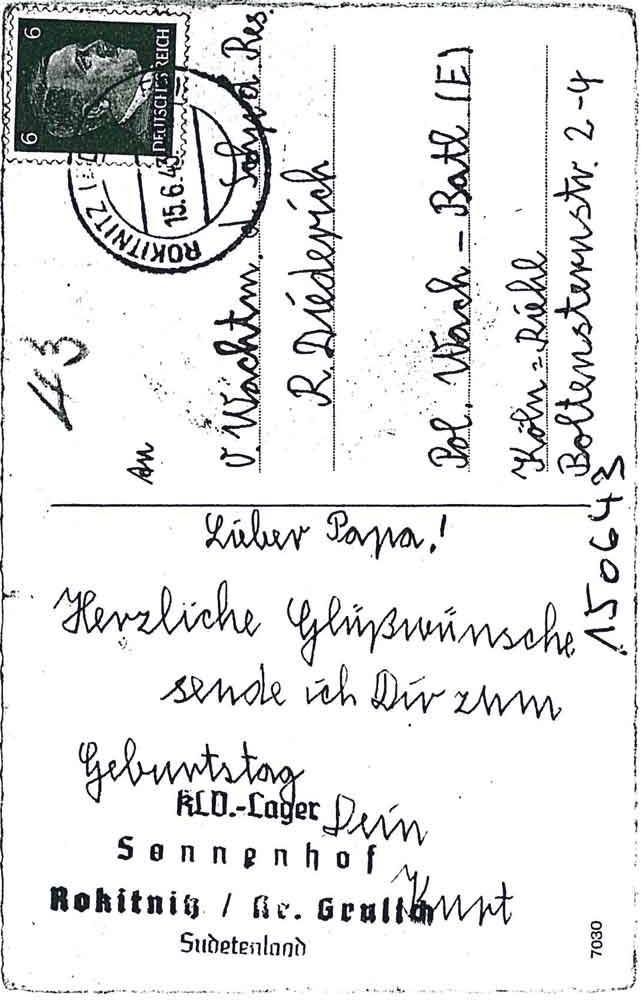 6
6
DEUTSCHES REICH
ROKITNITZ
15.6.43
43
An
v. Wachtm. d Schud Res.
R. Diederich
Pol. Wach - Batl (E)
Köln=Riehl
Boltensternstr. 2-4
150643
Lieber Papa!
Herzliche Glüßwünsche
sende ich Dir zum
Geburtstag
KLD.-Lager
Dein
Sonnenhof
Kurt
Rokitnitz / Kr. Grulich
Sudetenland
7030